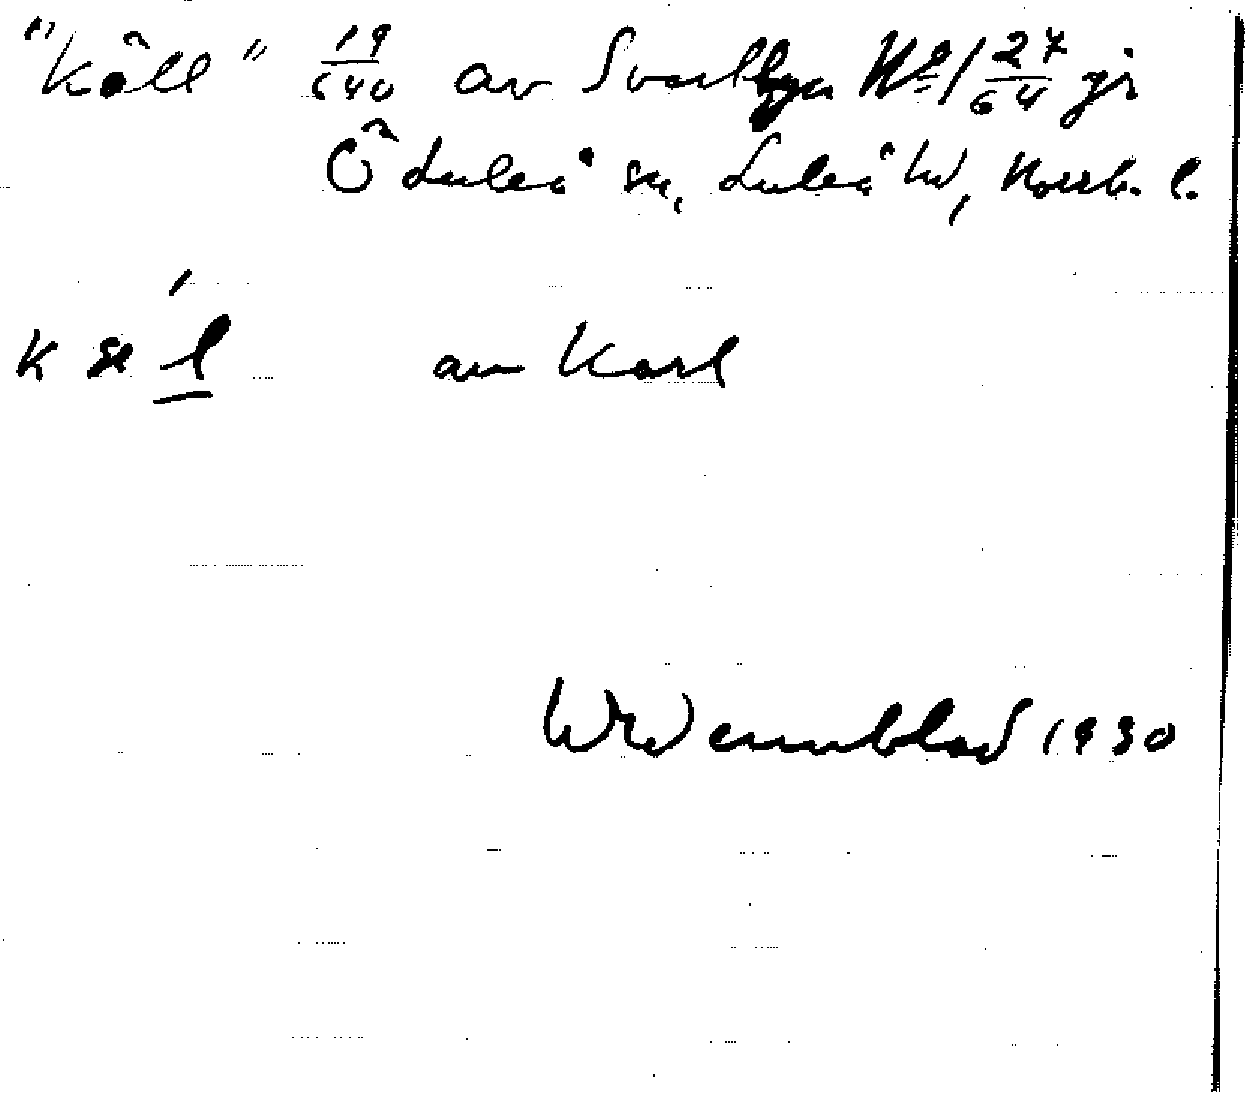 "Köll" 19/640 av Svartbyn Nº 1 27/64 i
Ö Luleå sn, Luleå hd, Norrb. l.
k æ l av Karl
W Wennblad 1930